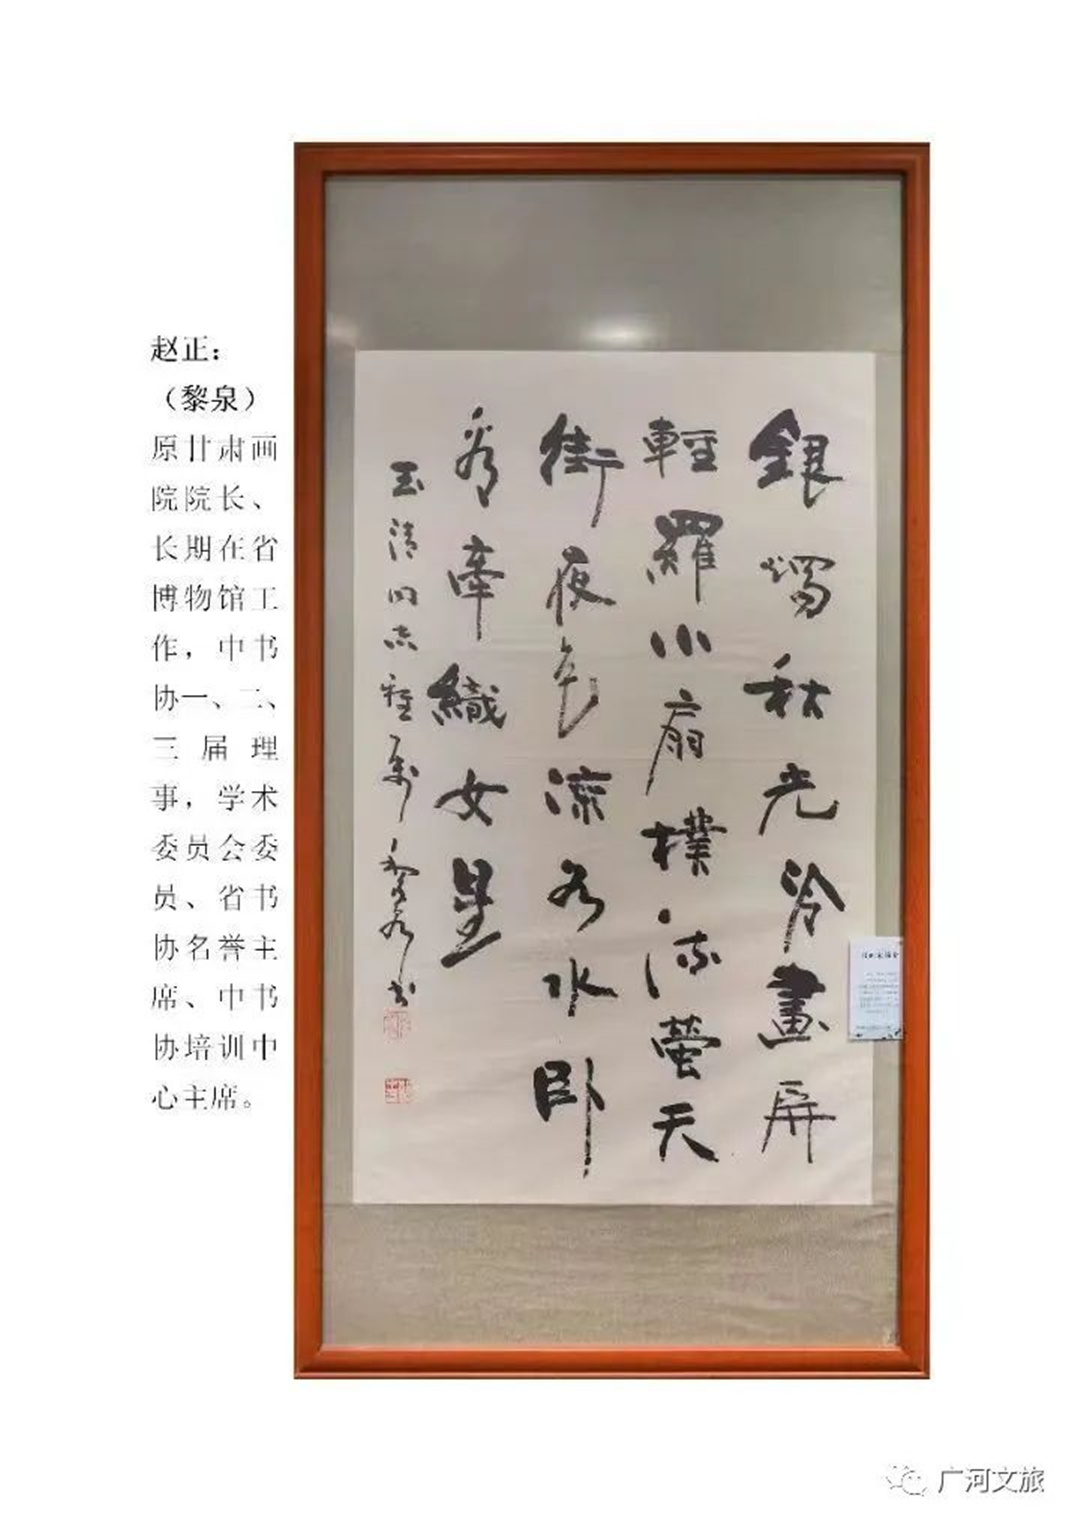 赵正：
（黎泉）
原甘肃画
院院长、
长期在省
博物馆工
作，中书
协一、二、
三届理
事，学术
委员会委
员、省书
协名誉主
席、中书
协培训中
心主席。
銀燭秋光冷畫屏
輕羅小扇撲流螢天
街夜色涼如水卧
看牽織女星
玉清同志雅属 黎泉书
广河文旅